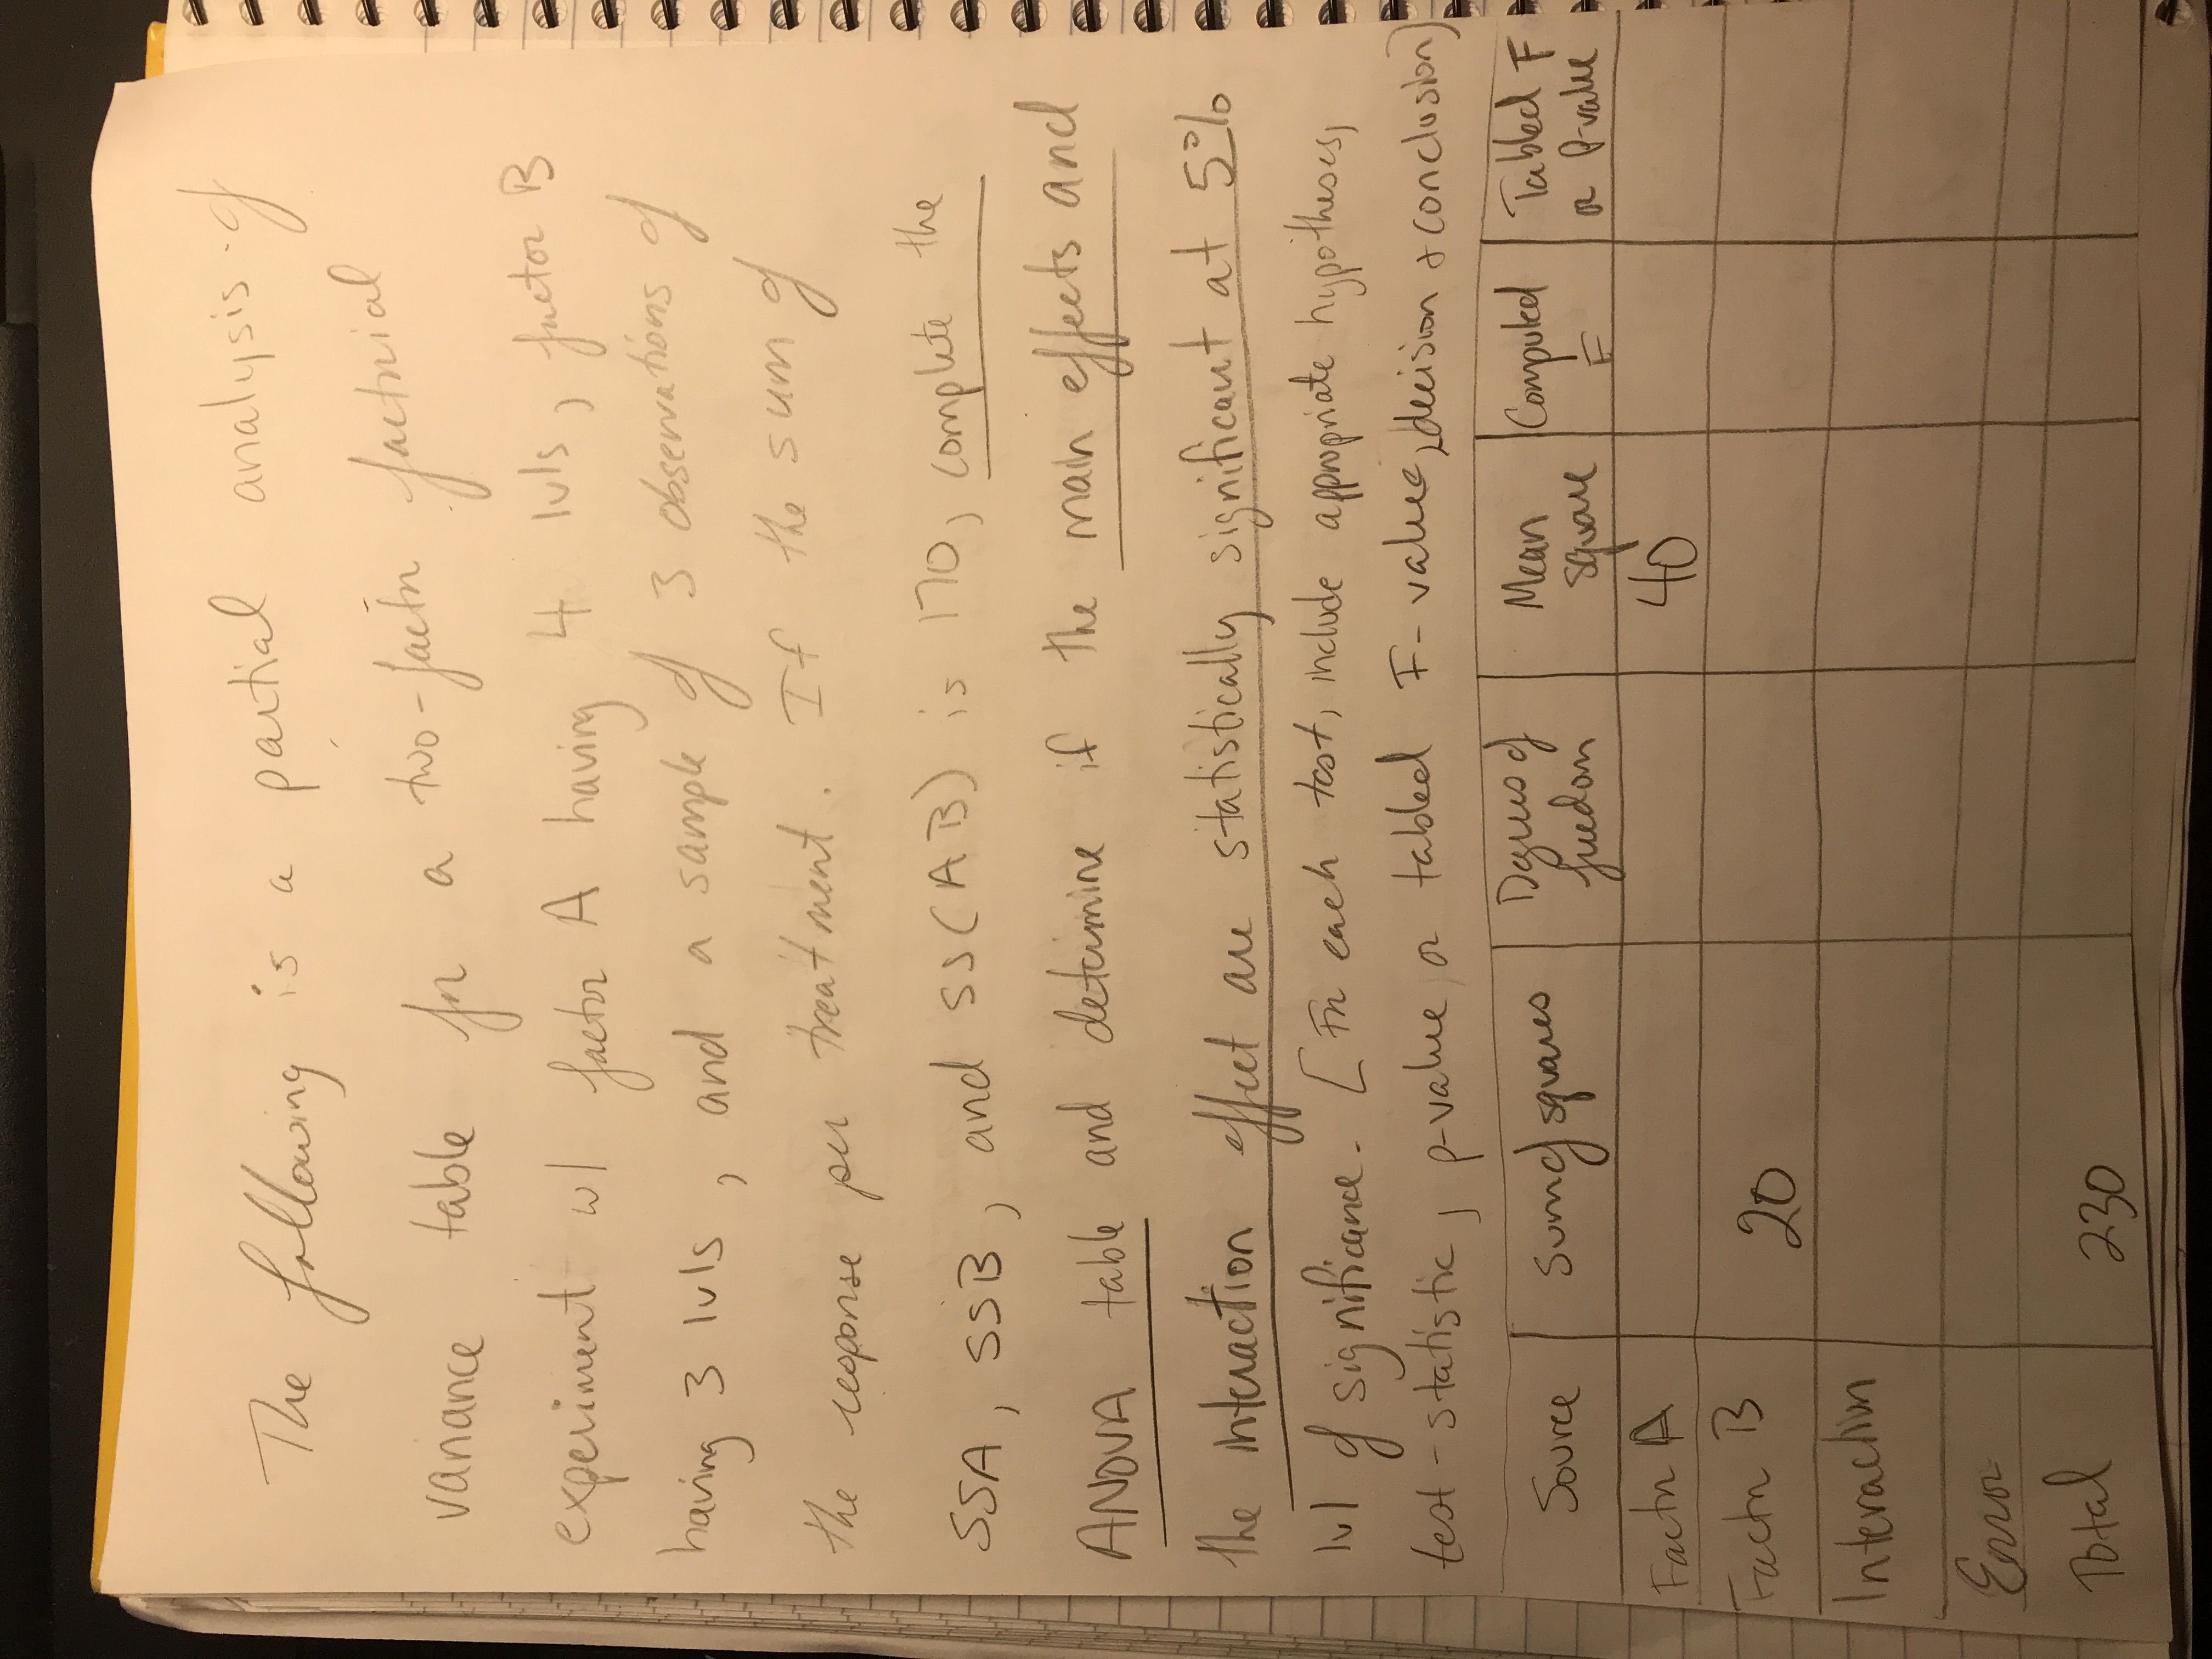 The following is a partial analysis of
variance table for a two-factor factorial
experiment w/ factor A having 4 lvls, factor B
having 3 lvls, and a sample of 3 observations of
the response per treatment. If the sum of
SSA, SSB, and SS(AB) is 170, complete the
ANOVA table and determine if the main effects and
the interaction effect are statistically significant at 5%
lvl of significance. [For each test, include appropriate hypotheses,
test-statistic, p-value, or tabled F-value, decision + conclusion]
Source Sum of squares Degrees of freedom Mean square Computed F Tabled F or P-value
Factor A 40
Factor B 20
Interaction
Error
Total 230